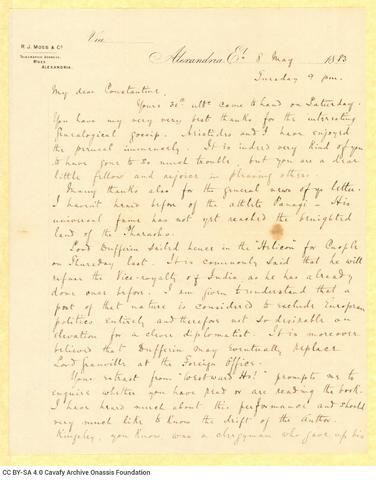 Via
R. J. MOSS & CO.
TELEGRAPHIC ADDRESS,
MOSS
ALEXANDRIA.
Alexandria, Et. 8 May 1883
Tuesday 9 p.m.
My dear Constantine,
Yours 30th ulto. came to hand on Saturday.
You have my very very best thanks for the interesting
genealogical gossip. Aristides and I have enjoyed
the perusal immensely. It is indeed very kind of you
to have gone to so much trouble, but you are a dear
little fellow and rejoice in pleasing others.
Many thanks also for the general news of yr letter.
I haven't heard before of the athlete Panagi – His
universal fame has not yet reached the benighted
land of the Pharaohs.
Lord Dufferin sailed hence in the "Helicon" for Cnople
on Thursday last. It is commonly said that he will
refuse the Vice-royalty of India, as he has already
done once before. I am given to understand that a
post of that nature is considered to exclude European
politics entirely and therefore not so desirable an
elevation for a clever diplomatist. It is moreover
believed that Dufferin may eventually replace
Lord Granville at the Foreign Office.
Your extract from "Westward Ho!" prompts me to
enquire whether you have read or are reading the book.
I have heard much about this performance and should
very much like to know the drift of the author.
Kingsley, you know, was a clergyman who gave up his
CC BY-SA 4.0 Cavafy Archive Onassis Foundation